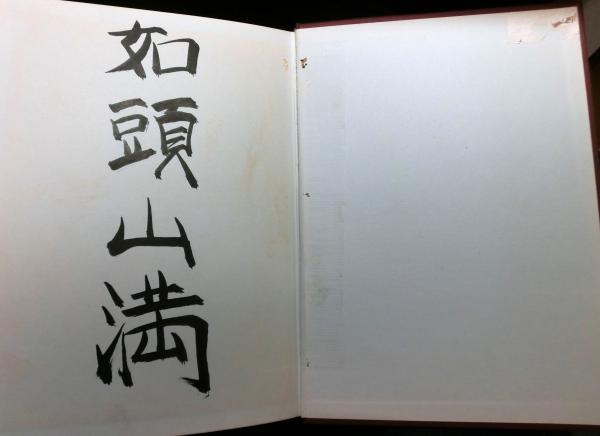 如頭山満